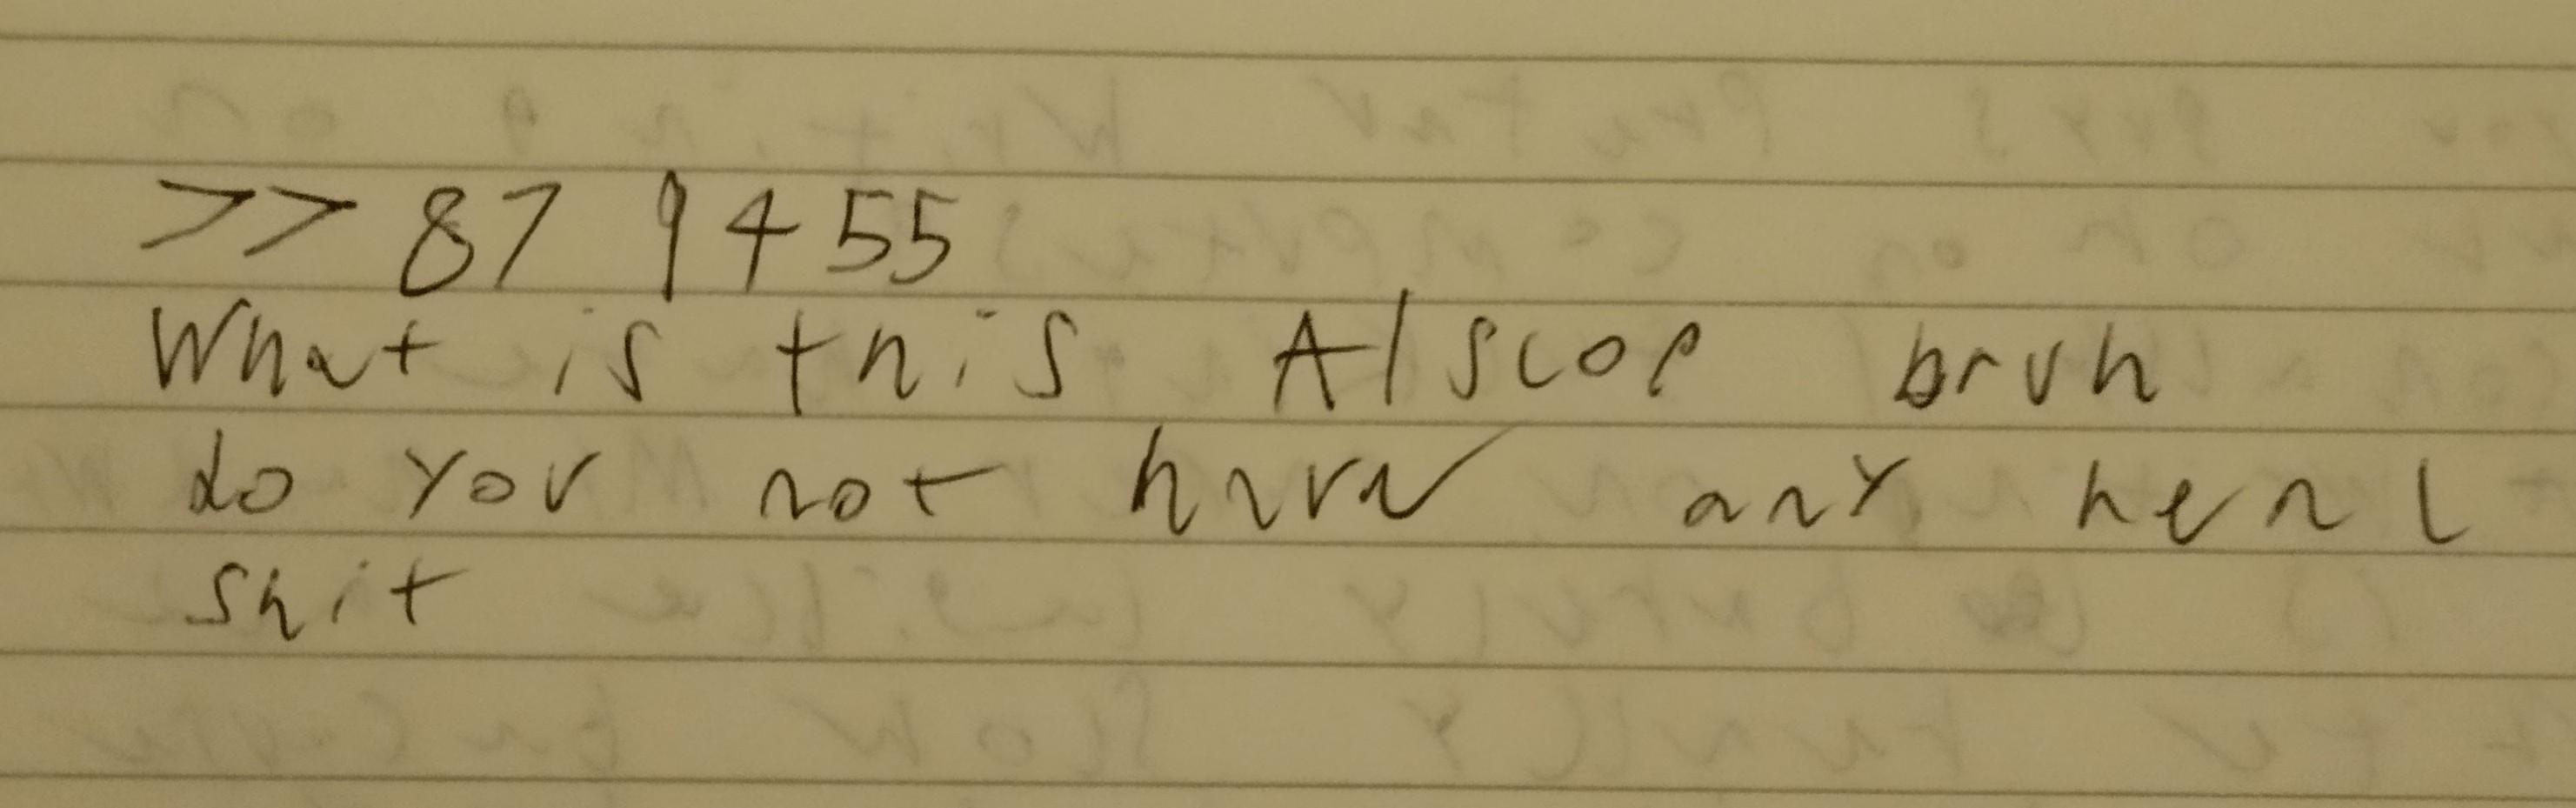 >>879455
What is this AI slop bruh
do you not have any real
shit